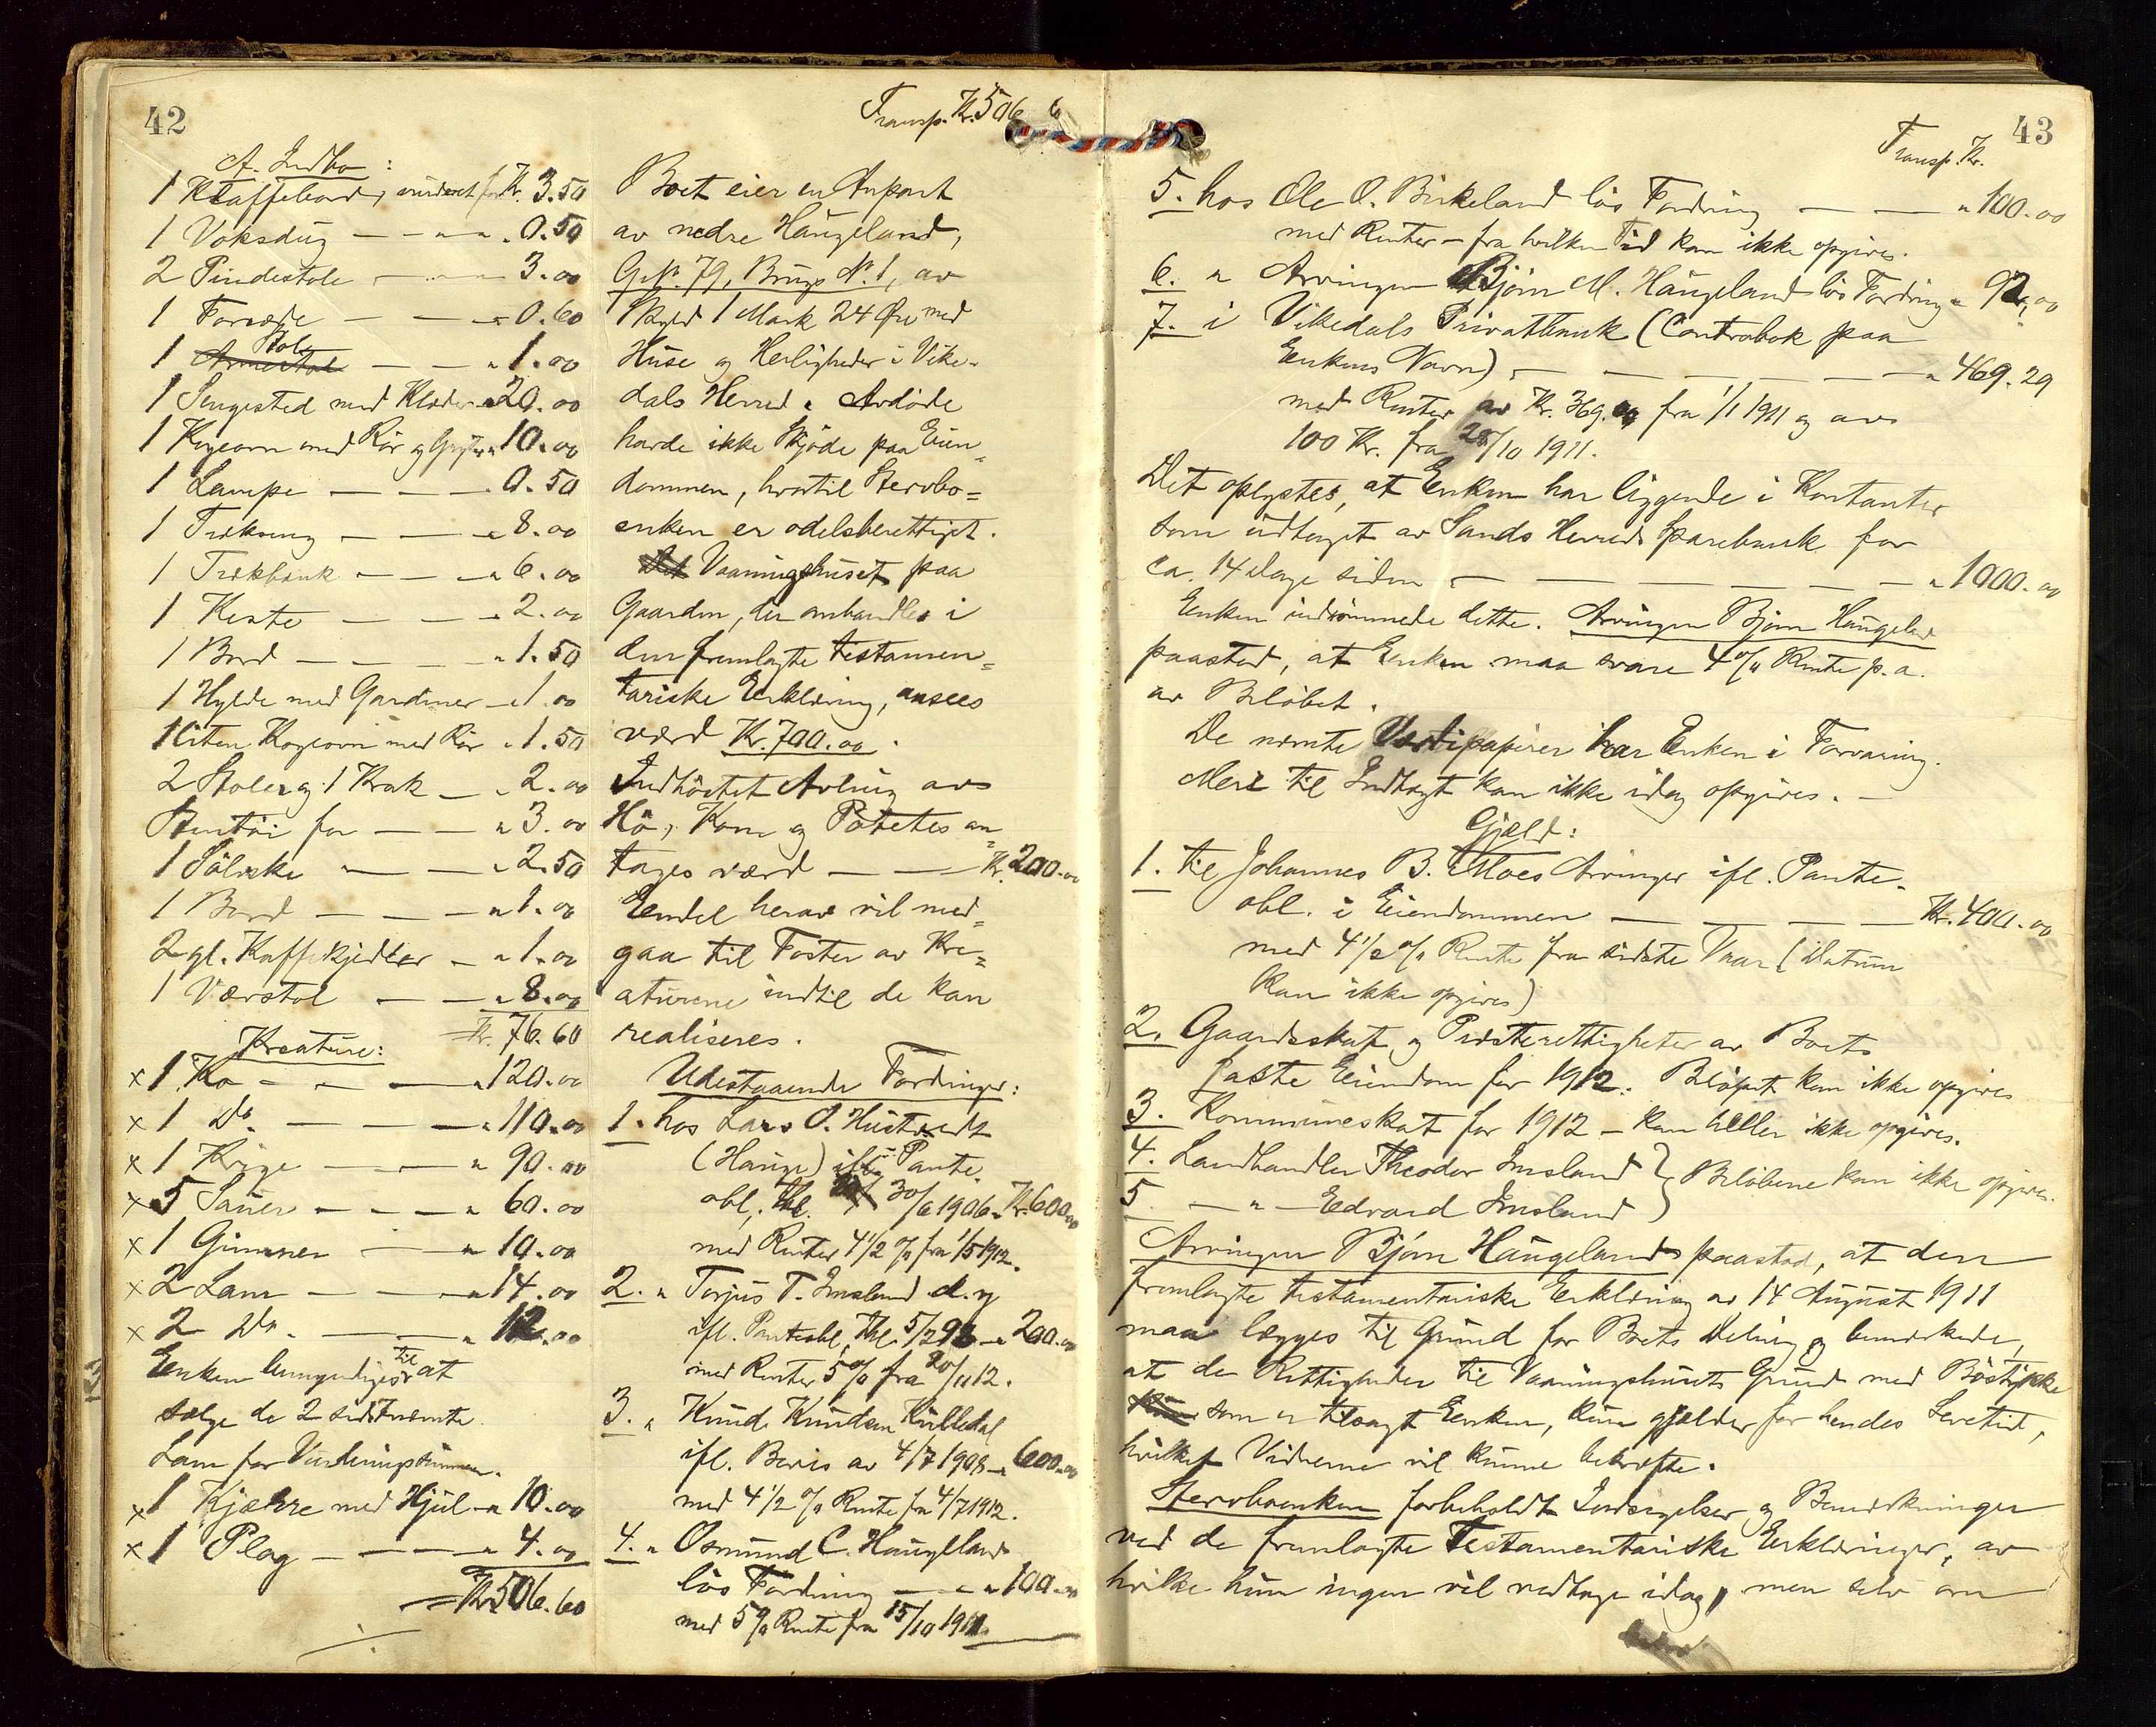 42
Transp. Kr. 506
A. Indbo:
1 Klaffebord, vurderet for Kr. 3.50
1 Voksdug — — " — " 0.50
2 Pindestole — — " 3.00
1 Forsæde — — " 0.60
1 Stol — — " 1.00
1 Sengested med Klæder " 20.00
1 Kogeovn med Rör og Gryter " 10.00
1 Lampe — — — " 0.50
1 Træseng — — — " 8.00
1 Trækbænk — — — " 6.00
1 Kiste — — — " 2.00
1 Bord — — — " 1.50
1 Hylde med Gardiner — " 1.00
1 liten Kogeovn med Rör " 1.50
2 Stoler og 1 Krak — " 2.00
Stentöi for — — " 3.00
1 Sölvske — — " 2.50
1 Bord — — — " 1.00
2 gl. Kaffekjedler — " 1.00
1 Værstol — — " 8.00
Kr. 76.60
Kreature:
x 1 Ko — — — " 120.00
x 1 Do. — — — " 110.00
x 1 Kvige — — " 90.00
x 5 Sauer — — — " 60.00
x 1 Gimmer — " 10.00
x 2 Lam — — — " 14.00
x 2 Do. — — " 12.00
Enken bemyndiges til at
sælge de 2 sidstnævnte
Lam for Vurderingssummen.
x 1 Kjærre med Hjul — " 10.00
x 1 Plog — — — " 4.00
= Kr. 506.60
Boet eier en Anpart
av nedre Haugeland,
G. No. 79, Brugs No. 1, av
Skyld 1 Mark 24 Øre med
Huse og Herligheder i Vike-
dals Herred. Avdöde
havde ikke Skjöde paa Eien-
dommen, hvortil Stervbo-
enken er odelsberettiget.
Det Vaaningshuset paa
Gaarden, der omhandles i
den fremlagte testamen-
tariske Erklæring, ansees
værd Kr. 700.00.
Indhöstet Avling av
Hö, Korn og Potetes an-
tages værd — — Kr. 200.00
Endel herav vil med-
gaa til Foster av Kre-
aturene indtil de kan
realiseres.
Udestaaende Fordringer:
1. hos Lars O. Hustvedt
(Hauge) ifl. Pante-
obl. thl. 30/6 1906 — Kr. 600.00
med Renter 4 1/2 % fra 1/5 1912.
2. " Torjus T. Imsland d.y.
ifl. Panteobl. thl. 5/2 98 — " 200.00
med Renter 5 % fra 20/11 12.
3. " Knud Knudsen Kulledal
ifl. Bevis av 4/7 1908 — " 600.00
med 4 1/2 % Rente fra 4/7 1912.
4. " Osmund C. Haugeland
lös Fordring — — " 100.00
med 5 % Rente fra 15/10 1911
43
Transp. Kr.
5. hos Ole O. Birkeland lös Fordring — — " 100.00
med Renter — fra hvilken Tid kan ikke opgives.
6. " Arvingen Bjørn M. Haugeland lös Fordring " 92.00
7. i Vikedals Privatbank (Contrabok paa
Enkens Navn) — — — — — — " 469.29
med Renter av Kr. 369. fra 1/1 1911 og av
100 Kr. fra 28/10 1911.
Det oplystes, at Enken har liggende i Kontanter
som udtaget av Sands Herreds Sparebank for
ca. 14 Dage siden — — — — — — " 1000.00
Enken indrömmede dette. Arvingen Bjørn Haugeland
paastod, at Enken maa svare 4 % Rente p.a.
av Belöbet.
De nævnte Værdipapirer har Enken i Forvaring.
Mere til Indtægt kan ikke idag opgives. —
Gjæld:
1. til Johannes B. Moes Arvinger ifl. Pante-
obl. i Eiendommen — — — — Kr. 400.00
med 4 1/2 % Rente fra sidste Vaar (Datum
kan ikke opgives)
2. Gaardsskat og Præsterettigheter av Boets
faste Eiendom for 1912. Belöpet kan ikke opgives
3. Kommuneskat for 1912 — kan heller ikke opgives.
4. Landhandler Theodor Imsland } Belöbene kan ikke opgives.
5. — " — Edvard Imsland }
Arvingen Bjørn Haugeland paastod, at den
fremlagte testamentariske Erklæring av 14 August 1911
maa lægges til Grund for Boets Deling og bemærkede,
at de Rettigheder til Vaaningshusets Grund med Böstykke
som er tilsagt Enken, kun gjælder for hendes Levetid,
hvilket Vidnerne vil kunne bekræfte.
Stervboenken forbeholdt Indsigelser og Bemærkninger
ved de fremlagte Testamentariske Erklæringer, av
hvilke hun ingen vil vedtage idag, men selv om